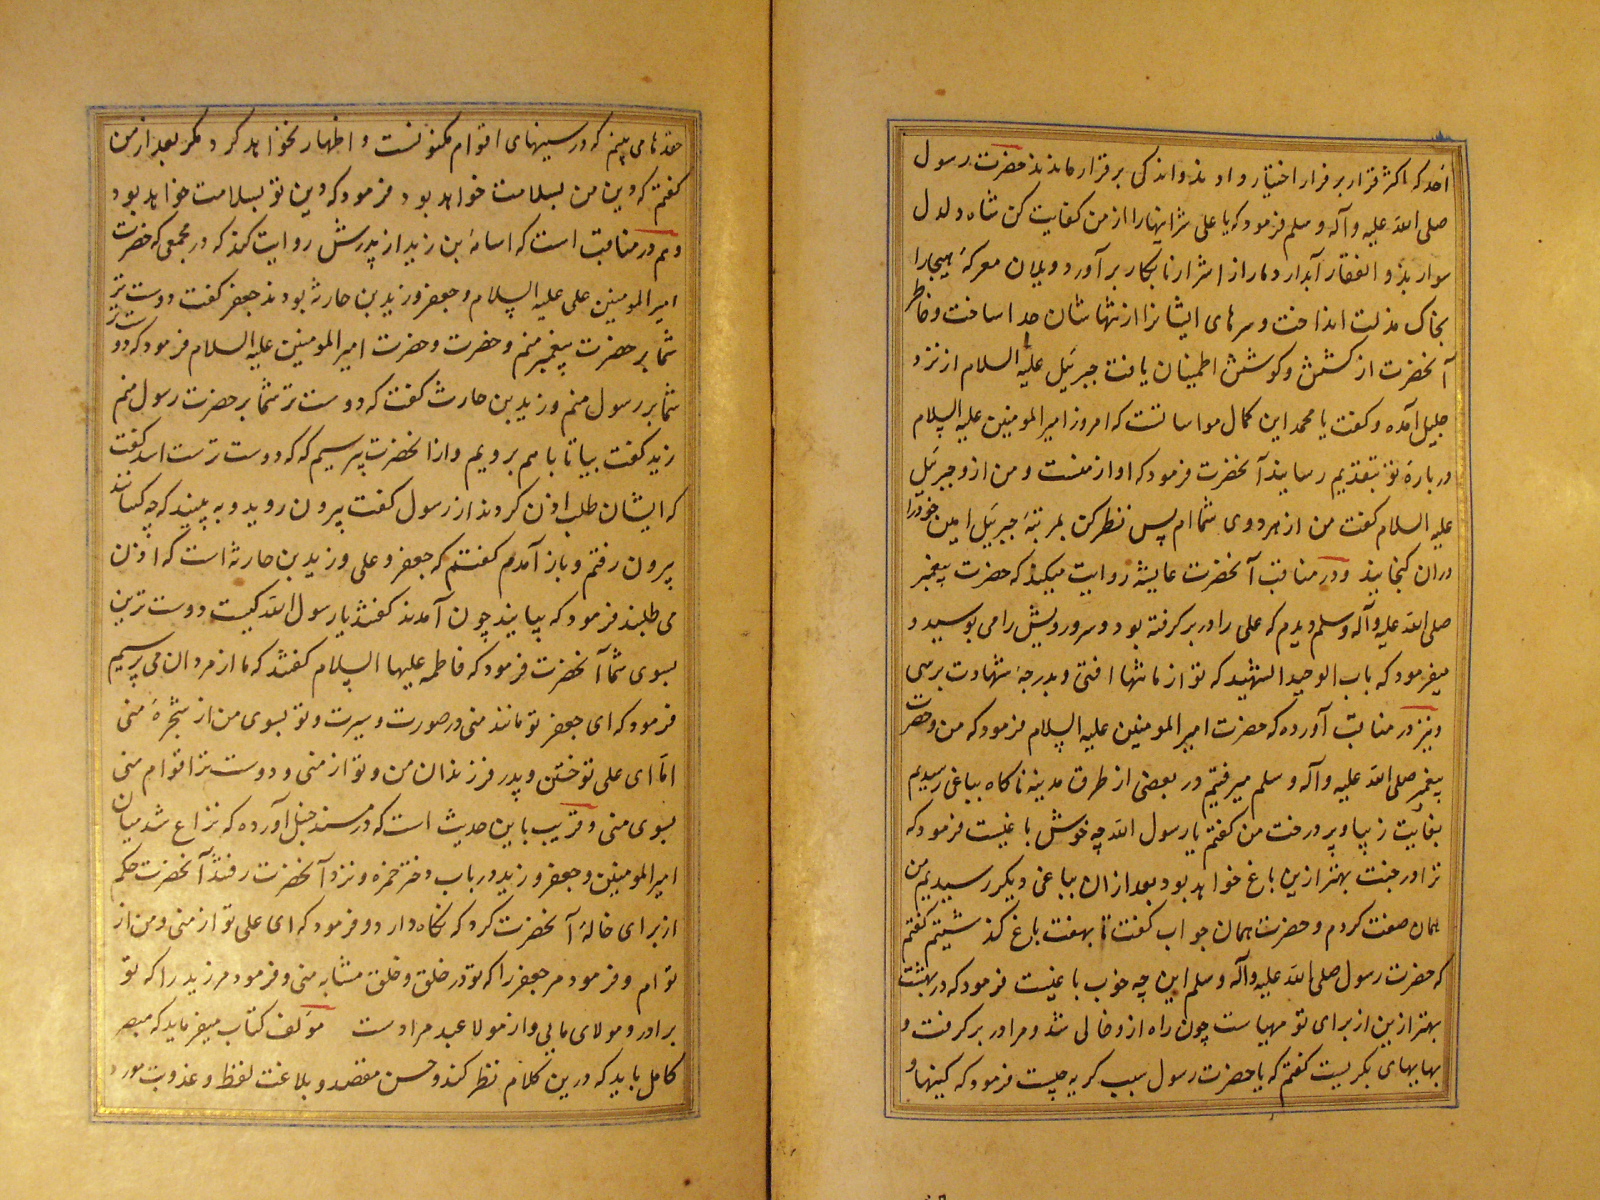 احد که اکثر قرار بر فرار اختیار دادند و اندکی برقرار ماندند حضرت رسول
صلی الله علیه و آله و سلم فرمود که یا علی شر اینها را از من کفایت کن شاه دلدل
سوار بذو الفقار آبدار دمار از اشرار نابکار برآورد و یلان معرکهٔ هیجا را
بخاک مذلت انداخت و سرهای ایشانرا از تنهاشان جدا ساخت و خاطر
آنحضرت از کشش و کوشش اطمینان یافت جبرئیل علیه السلام از نزد
جلیل آمده و گفت یا محمد این کمال مواساتست که امروز امیرالمومنین علیه السلام
دربارهٔ تو بتقدیم رسانید آنحضرت فرمود که او از منست و من ازو جبرئیل
علیه السلام گفت من از هر دوی شماام پس نظر کن بمرتبهٔ جبرئیل امین خود را
دران گنجانید و در مناقب آنحضرت عایشه روایت میکند که حضرت پیغمبر
صلی الله علیه و آله و سلم دیدم که علی را در بر گرفته بود و سر و رویش را می بوسید و
میفرمود که باب الوحید الشهید که تو از ما تنها افتی و بدرجهٔ شهادت برسی
و نیز در مناقب آورده که حضرت امیر المومنین علیه السلام فرمود که من و حضرت
پیغمبر صلی الله علیه و آله و سلم میرفتیم در بعضی از طرق مدینه ناکاه بباغی رسیدیم
بغایت زیبا و پر درخت من کفتم یا رسول الله چه خوش باغیست فرمود که
ترا در جنت بهتر ازین باغ خواهد بود بعد از ان بباغی دیکر رسیدیم من
همان صفت کردم و حضرت همان جواب کفت تا بهفت باغ کذشتیم کفتم
که حضرت رسول صلی الله علیه و آله و سلم این چه خوب باغیست فرمود که در بهشت
بهتر ازین از برای تو مهیاست چون راه از و خالی شد و مرا در بر کرفت و
بهایهای بکریست کفتم که یا حضرت رسول سبب کریه چیست فرمود که کینها و
حقدها می بینم که در سینهای اقوام مکنونست و اظهار نخواهد کرد مکر بعد از من
کفتم که دین من بسلامت خواهد بود فرمود که دین تو بسلامت خواهد بود
و هم در مناقب است که اسامهٔ بن زید از پدرش روایت کند که در مجمعی که حضرت
امیر المومنین علی علیه السلام و جعفر و زید بن حارثه بودند جعفر کفت دوست تر
شما بر حضرت پیغمبر منم و حضرت و حضرت امیر المومنین علیه السلام فرمود که دوست تر
شما بر رسول منم و زید بن حارث کفت که دوست تر شما بر حضرت رسول منم
زید کفت بیا تا با هم برویم و از آنحضرت پرسیم که که دوست ترست اسد کفت
که ایشان طلب اذن کردند از رسول کفت بیرون روید و به بینید که چه کسانند
بیرون رفتم و باز آمدم کفتم که جعفر و علی و زید بن حارثه است که اذن
می طلبند فرمود که بیایند چون آمدند کفتند یا رسول الله کیست دوست ترین
بسوی شما آنحضرت فرمود که فاطمه علیها السلام کفتند که ما از مردان می پرسیم
فرمود که ای جعفر تو مانند منی در صورت و سیرت و تو بسوی من از شجرهٔ منی
اما ای علی تو ختن و پدر فرزندان من و تو از منی و دوست تر اقوام منی
بسوی منی و قریب باین حدیث است که در مسند حنبل آورده که نزاع شد میان
امیر المومنین و جعفر و زید در باب دختر حمزه و نزد آنحضرت رفتند آنحضرت حکم
از برای خالهٔ آنحضرت کرد که نکاه دارد و فرمود که ای علی تو از منی و من از
تو ام و فرمود مر جعفر را که تو در خلق و خلق مشابه منی و فرمود مر زید را که تو
برادر و مولای مایی و از مولا عبد مرادست مولف کتاب میفرماید که مبصر
کامل باید که درین کلام نظر کند و حسن مقصد و بلاغت لفظ و عذوبت مورد